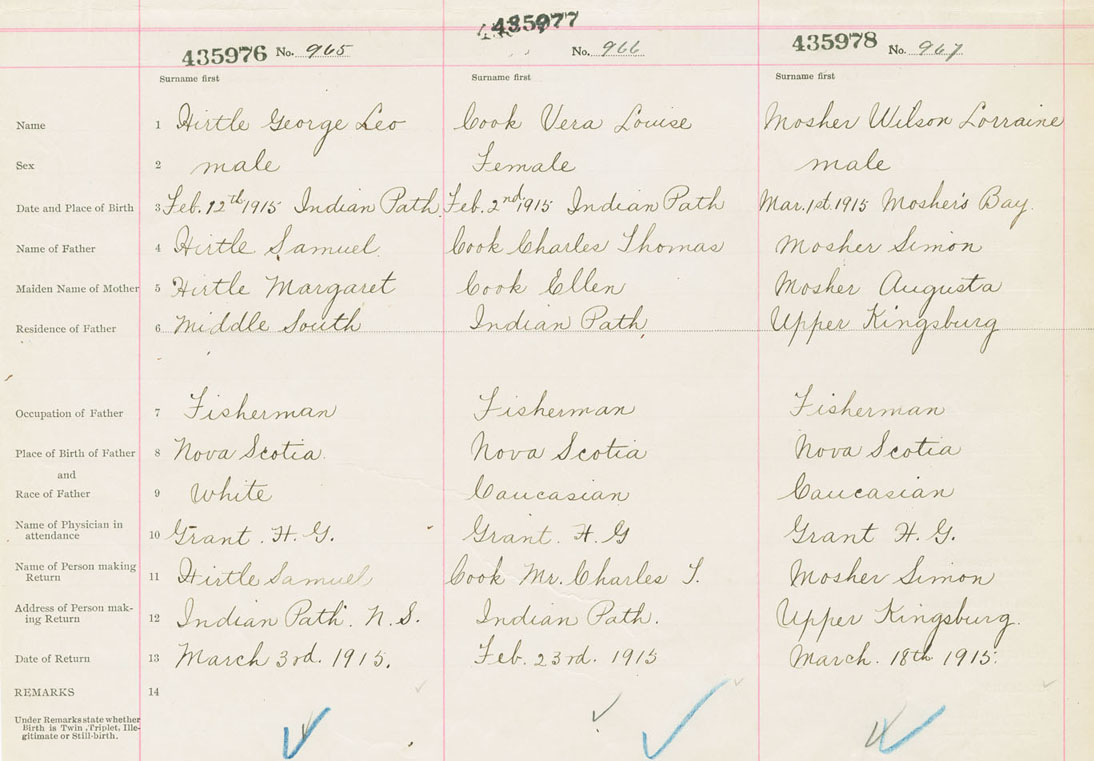 435976 No. 965 435977 No. 966 435978 No. 967
Surname first Surname first Surname first
Name 1 Hirtle George Leo Cook Vera Louise Mosher Wilson Lorraine
Sex 2 male Female male
Date and Place of Birth 3 Feb. 12th 1915 Indian Path Feb. 2nd 1915 Indian Path Mar. 1st 1915 Mosher's Bay.
Name of Father 4 Hirtle Samuel Cook Charles Thomas Mosher Simon
Maiden Name of Mother 5 Hirtle Margaret Cook Ellen Mosher Augusta
Residence of Father 6 Middle South Indian Path Upper Kingsburg
Occupation of Father 7 Fisherman Fisherman Fisherman
Place of Birth of Father 8 Nova Scotia Nova Scotia Nova Scotia
and
Race of Father 9 White Caucasian Caucasian
Name of Physician in
attendance 10 Grant. H. G. Grant. H. G Grant H. G.
Name of Person making
Return 11 Hirtle Samuel Cook Mr. Charles T. Mosher Simon
Address of Person mak-
ing Return 12 Indian Path. N.S. Indian Path. Upper Kingsburg.
Date of Return 13 March 3rd. 1915. Feb. 23rd. 1915 March. 18th 1915.
REMARKS 14
Under Remarks state whether
Birth is Twin, Triplet, Ille-
gitimate or Still-birth.